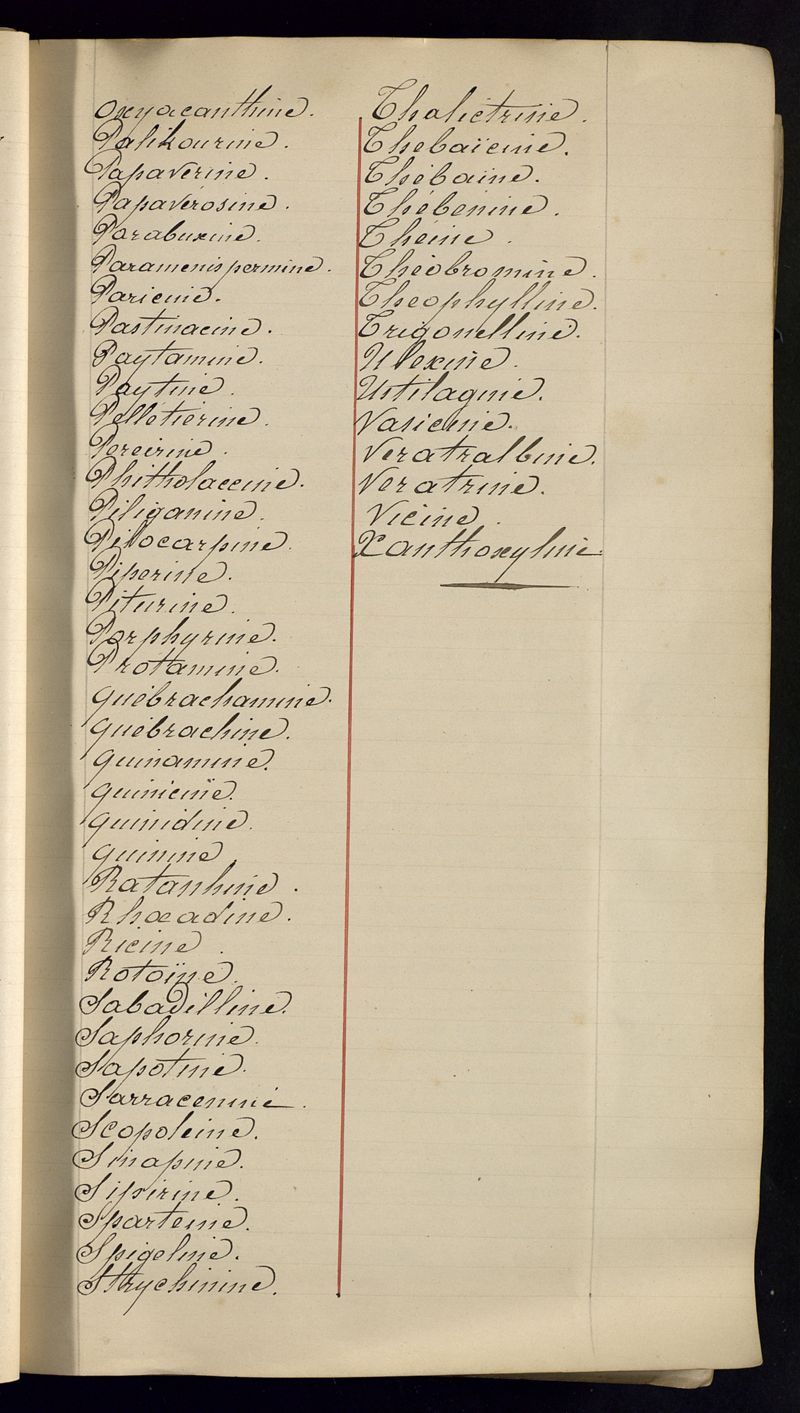 Oxyacanthine.
Palikourine.
Papavérine.
Papavérosine.
Parabuxine.
Paramenispermine.
Paricine.
Pastinacine.
Paytamine.
Paytine.
Pelletiérine.
Pereirine.
Phitholaccine.
Piliganine.
Pilocarpine.
Piperine.
Piturine.
Porphyrine.
Protamine.
Québrachamine.
Quebrachine.
Quinamine.
Quinicine.
Quinidine.
Quinine.
Ratanhine.
Rhœadine.
Ricine.
Rotoïne.
Sabadilline.
Saphorine.
Sapotine.
Sarracenine.
Scopoleine.
Sinapine.
Sipirine.
Sparteine.
Spigeline.
Strychinine.
Thalictrine.
Thebaïcine.
Thébaine.
Thébenine.
Theine.
Théobromine.
Theophylline.
Trigonelline.
Ulexine.
Ustilagine.
Vasicine.
Veratralbine.
Veratrine.
Vicine.
Xanthoxyline.